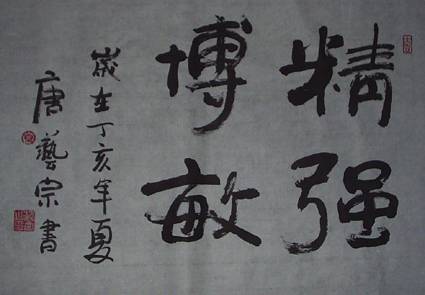 精强
博敏
岁在丁亥年夏
唐藝宗書